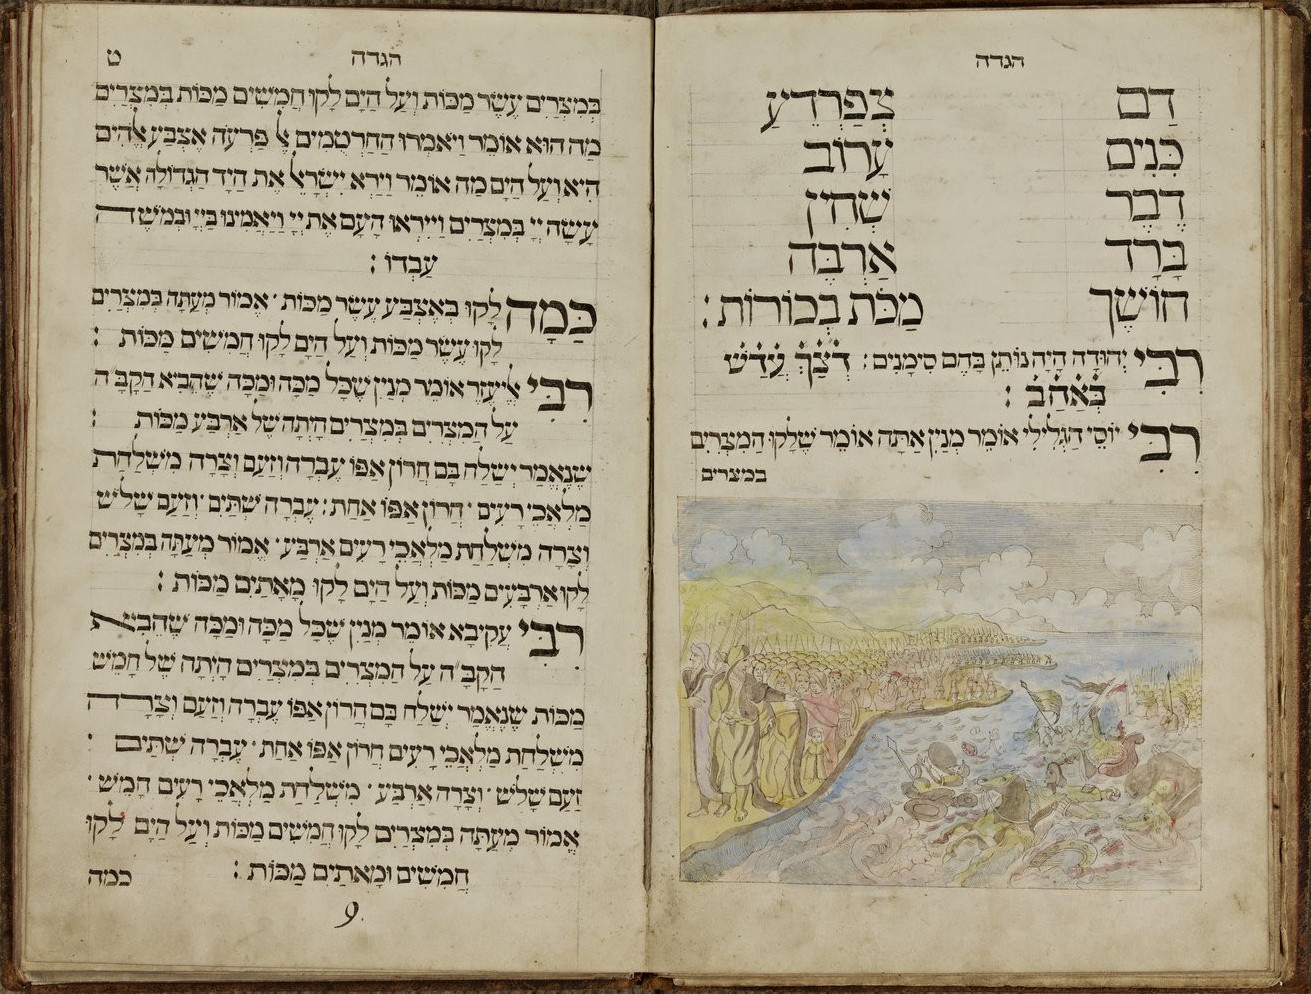 הגדה
דַם צְפַרְדֵעַ
כִּנִים עָרוֹב
דֶבֶר שְׁחִין
בָּרָד אַרְבֶּה
חוֹשֶׁךְ מַכֹּת בְּכוֹרוֹת :
רִבִּי יְהוּדָה הָיָה נוֹתֵן בָּהֶם סִימָנִים : דְצַ֗ךְ֗ עֲדַ֗שׁ֗
בְּאַ֗חַ֗ב֗ :
רִבִּי יוֹסֵי הַגְלִילִי אוֹמֵר מִנַיִן אַתָּה אוֹמֵר שֶׁלָקוּ הַמִצְרִים
במצרים
הגדה ט
בְּמִצְרַיִם עֶשֶׂר מַכּוֹת וְעַל הַיָם לָקוּ חֲמִשִׁים מַכּוֹת בְּמִצְרַיִם
מַה הוּא אוֹמֵר וַיֹאמְרוּ הַחַרְטֻמִים אֶל פַּרְעֹה אֶצְבַּע אֱלֹהִים
הִיא וְעַל הַיָם מַה אוֹמֵר וַיַרְא יִשְׂרָאֵל אֶת הַיָד הַגְדוֹלָה אֲשֶׁר
עָשָׂה יְיָ בְּמִצְרַיִם וַיִירְאוּ הָעָם אֶת יְיָ וַיַאֲמִינוּ בַּיְיָ וּבְמֹשֶׁה
עַבְדוֹ :
כַּמָה לָקוּ בְּאֶצְבַּע עֶשֶׂר מַכּוֹת · אֱמוֹר מֵעַתָּה בְּמִצְרַיִם
לָקוּ עֶשֶׂר מַכּוֹת וְעַל הַיָם לָקוּ חֲמִשִׁים מַכּוֹת :
רִבִּי אֱלִיעֶזֶר אוֹמֵר מִנַיִן שֶׁכָּל מַכָּה וּמַכָּה שֶׁהֵבִיא הַקָבָּ״ה
עַל הַמִצְרִים בְּמִצְרַיִם הָיְתָה שֶׁל אַרְבַּע מַכּוֹת :
שֶׁנֶאֱמַר יְשַׁלַח בָּם חֲרוֹן אַפּוֹ עֶבְרָה וָזַעַם וְצָרָה מִשְׁלַחַת
מַלְאֲכֵי רָעִים · חֲרוֹן אַפּוֹ אַחַת : עֶבְרָה שְׁתַּיִם · וָזַעַם שָׁלִישׁ
וְצָרָה מִשְׁלַחַת מַלְאֲכֵי רָעִים אַרְבַּע · אֱמוֹר מֵעַתָּה בְּמִצְרַיִם
לָקוּ אַרְבָּעִים מַכּוֹת וְעַל הַיָם לָקוּ מָאתַיִם מַכּוֹת :
רִבִּי עֲקִיבָא אוֹמֵר מִנַיִן שֶׁכָּל מַכָּה וּמַכָּה שֶׁהֵבִיא
הַקָבָּ״ה עַל הַמִצְרִים בְּמִצְרַיִם הָיְתָה שֶׁל חָמֵשׁ
מַכּוֹת שֶׁנֶאֱמַר יְשַׁלַח בָּם חֲרוֹן אַפּוֹ עֶבְרָה וָזַעַם וְצָרָה
מִשְׁלַחַת מַלְאֲכֵי רָעִים חֲרוֹן אַפּוֹ אַחַת · עֶבְרָה שְׁתַּיִם :
זַעַם שָׁלִשׁ · וְצָרָה אַרְבַּע · מִשְׁלַחַת מַלְאֲכֵי רָעִים חָמֵשׁ ·
אֱמוֹר מֵעַתָּה בְּמִצְרַיִם לָקוּ חֲמִשִׁים מַכּוֹת וְעַל הַיָם לָקוּ
חֲמִשִׁים וּמָאתַיִם מַכּוֹת : כמה
9.